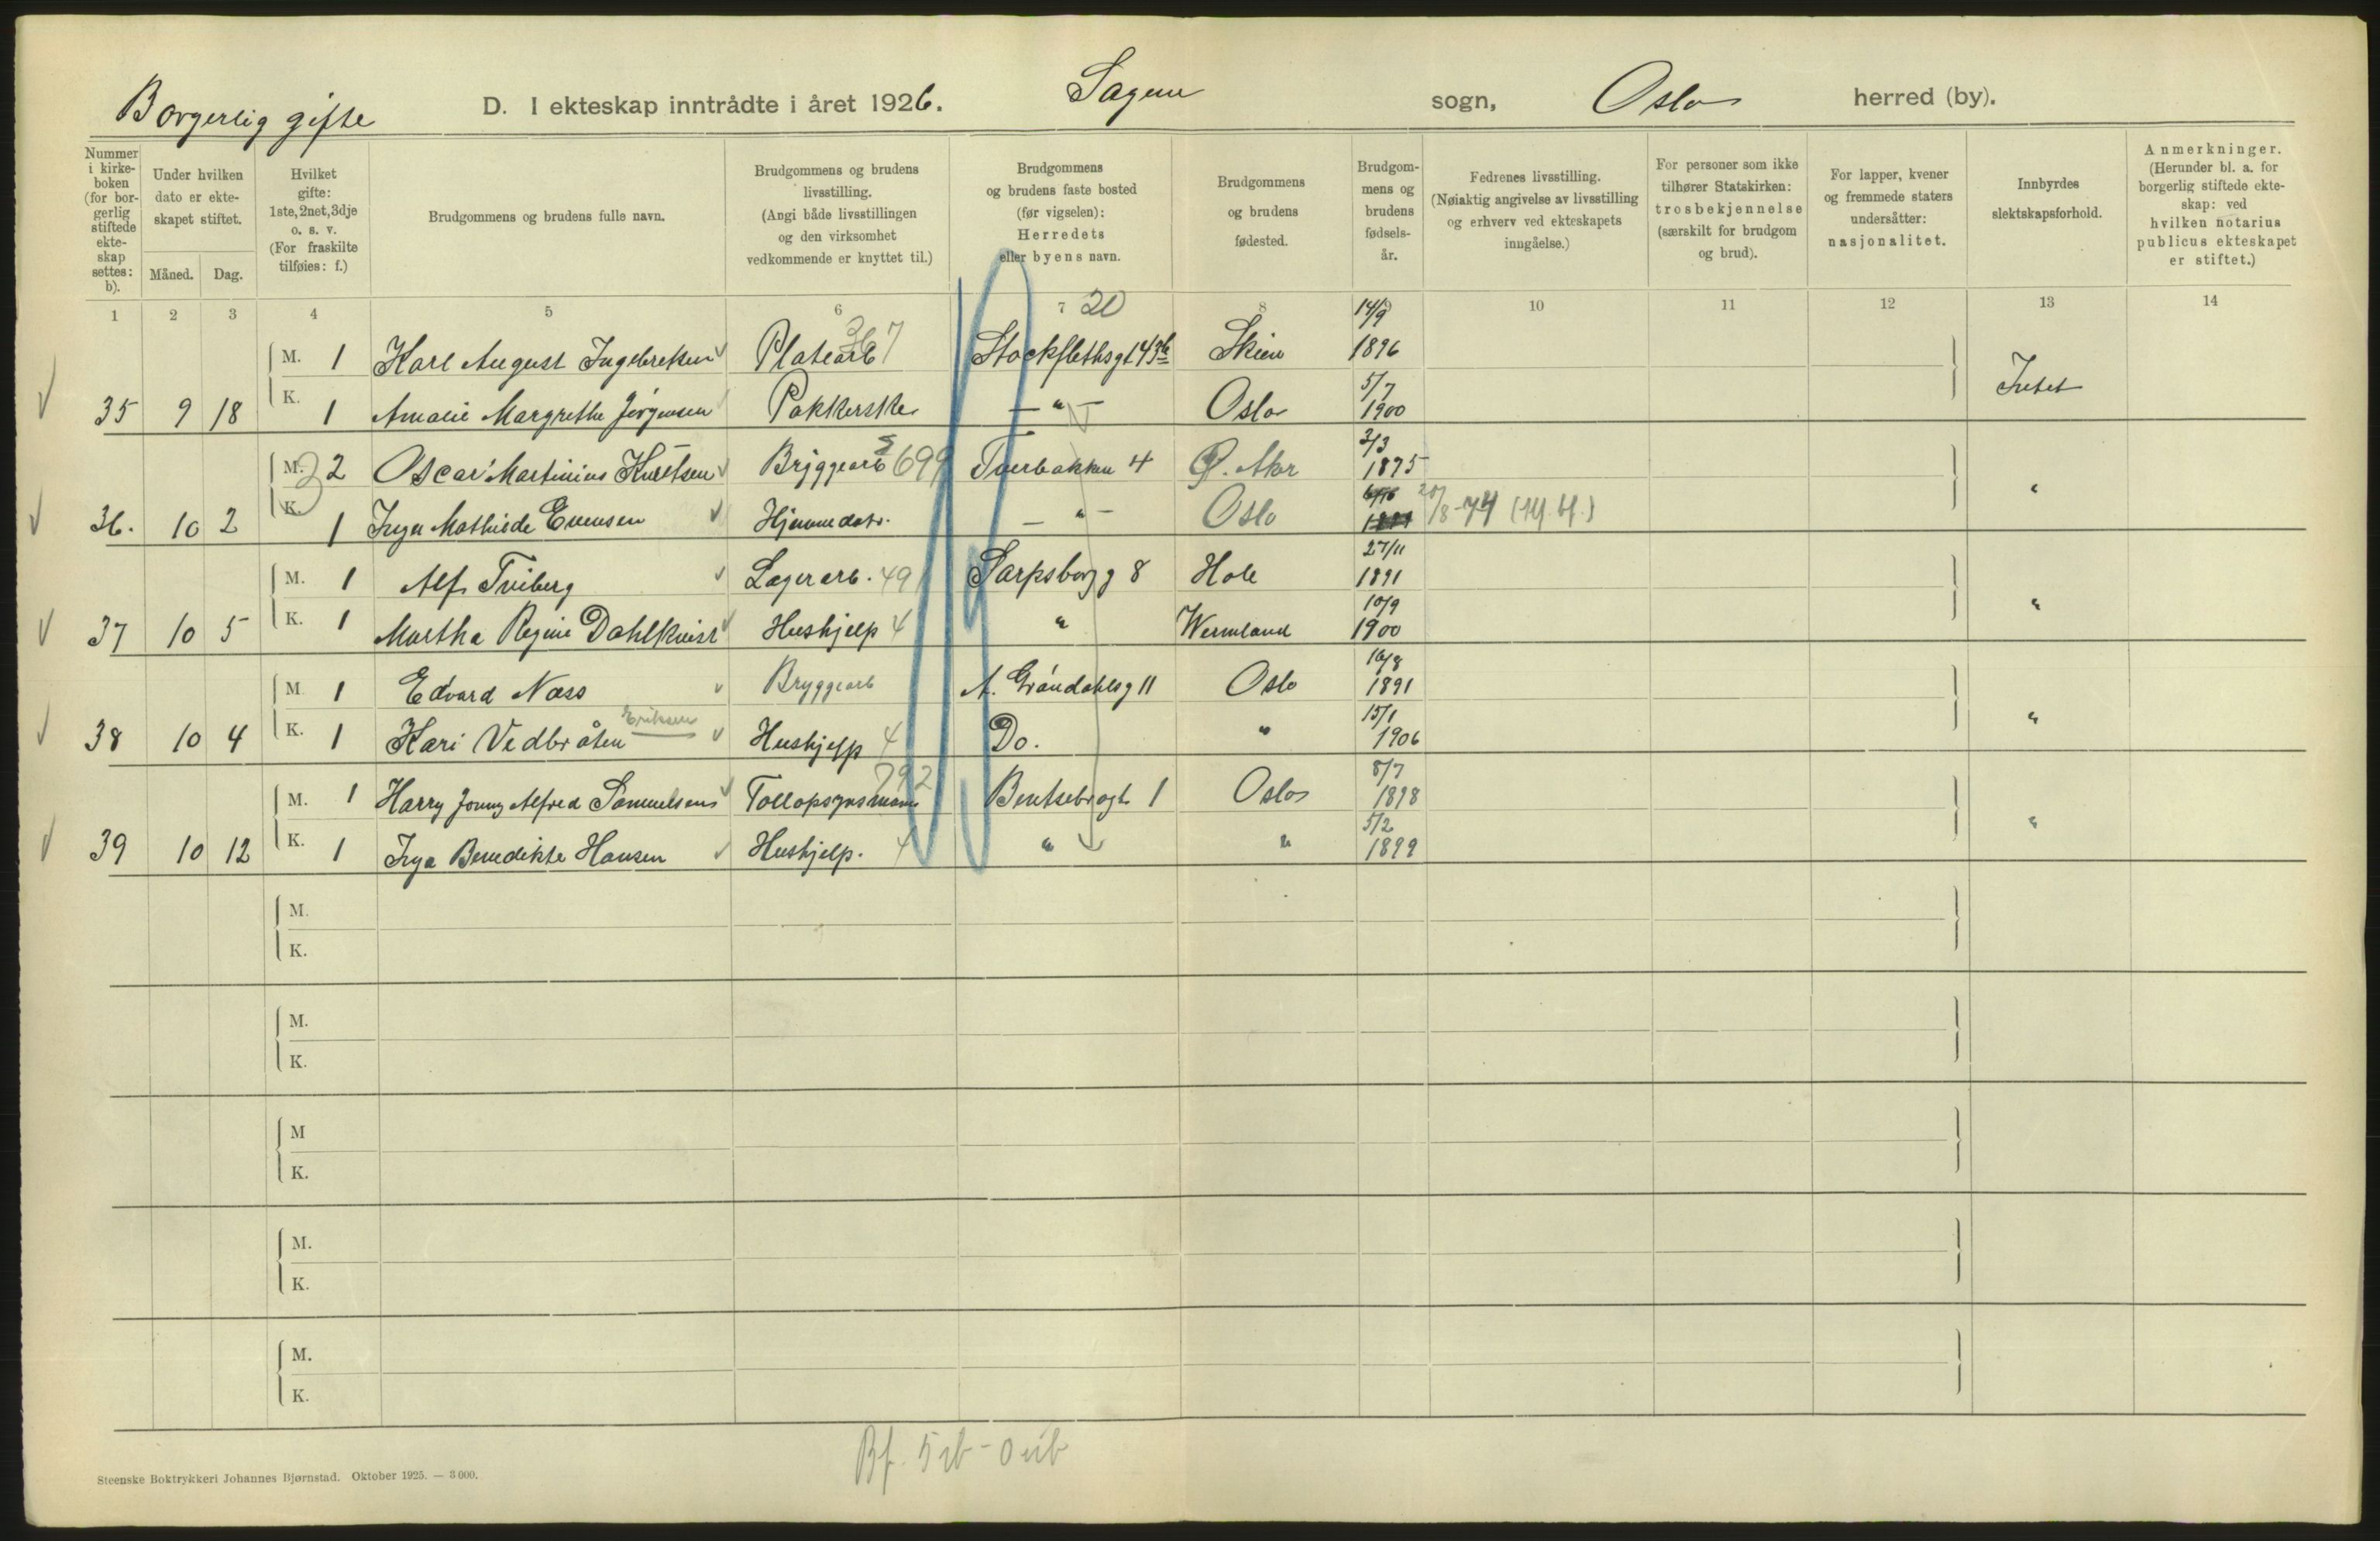 Borgerlig gifte
D. I ekteskap inntrådte i året 1926. Sagene sogn, Oslo herred (by).
Nummer i kirkeboken (for borgerlig stiftede ekteskap settes: b).
Under hvilken dato er ekteskapet stiftet.
Måned. Dag.
Hvilket gifte: 1ste, 2net, 3dje o. s. v. (For fraskilte tilføies: f.)
Brudgommens og brudens fulle navn.
Brudgommens og brudens livsstilling. (Angi både livsstillingen og den virksomhet vedkommende er knyttet til.)
Brudgommens og brudens faste bosted (før vigselen): Herredets eller byens navn.
Brudgommens og brudens fødested.
Brudgommens og brudens fødselsår.
Fedrenes livsstilling. (Nøiaktig angivelse av livsstilling og erhverv ved ekteskapets inngåelse.)
For personer som ikke tilhører Statskirken: trosbekjennelse (særskilt for brudgom og brud).
For lapper, kvener og fremmede staters undersåtter: nasjonalitet.
Innbyrdes slektskapsforhold.
Anmerkninger. (Herunder bl. a. for borgerlig stiftede ekteskap: ved hvilken notarius publicus ekteskapet er stiftet.)
1 2 3 4 5 6 7 20 8 9 10 11 12 13 14
M. 1 Karl August Ingebretsen Platearb 367 Stockflethsgt 43b Skien 14/9 1896
35 9 18 K. 1 Amalie Margrethe Jörgensen Pakkerske — " — Oslo 5/7 1900 Intet
M. 2 Oscar Martinius Knutsen Bryggearb 699 Tverbakken 4 Ø. Aker 2/3 1875
36. 10 2 K. 1 Inga Mathilde Evensen Hjemmedatr. — " — Oslo 20/8-74 "
M. 1 Alf Tviberg Lagerarb. 49 Sarpsborgg 8 Hole 27/11 1891
37 10 5 K. 1 Martha Regine Dahlkvist Hushjelp 4 " Wermland 10/9 1900 "
M. 1 Edvard Næss Bryggearb A. Gröndahlsg 11 Oslo 16/8 1891
38 10 4 K. 1 Kari Vedbråten Eriksen Hushjelp 4 Do. " 15/1 1906 "
M. 1 Harry Jonny Alfred Samuelsen Tollopsynsmann 792 Bentsebrogt 1 Oslo 8/7 1898
39 10 12 K. 1 Inga Benedikte Hansen Hushjelp. 4 " " 5/2 1899 "
M.
K.
M.
K.
M
K.
M.
K.
M.
K.
Steenske Boktrykkeri Johannes Bjørnstad. Oktober 1925. — 3 000.